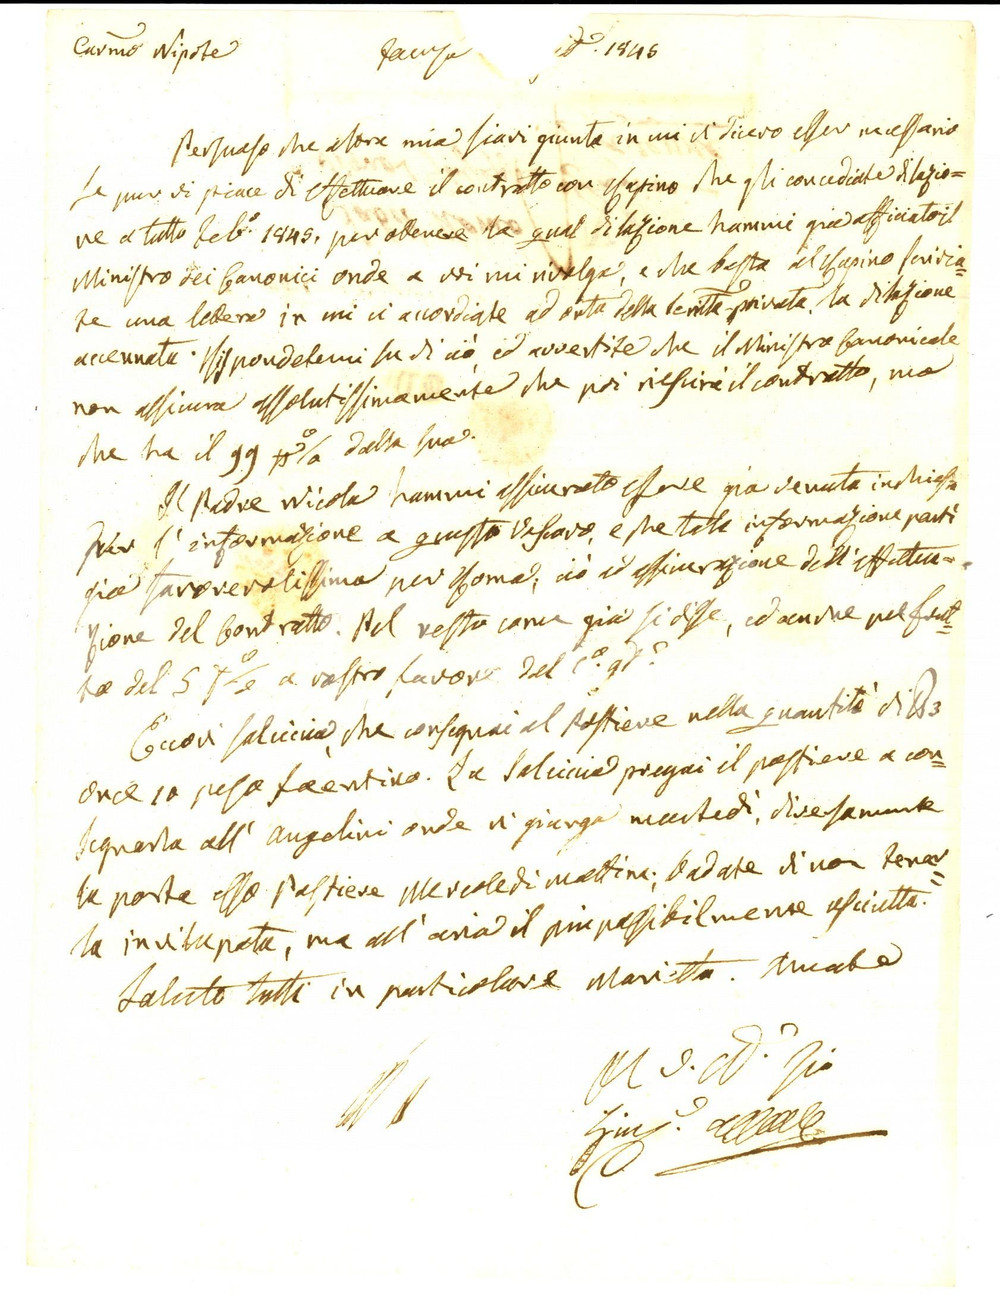 Carmo Nipote Faenza 1845
Persuaso che altra mia siavi giunta in cui vi dicevo esser necessario
se pur vi piace di effettuare il contratto con che gli concediate dilazio=
ne a tutto Feb.o 1845, per ottenere la qual dilazione hammi già officiato il
Ministro dei Canonici onde a voi mi rivolga, e che basta al scrivia=
te una lettera in cui ci accordiate ad onta della scritta privata la dilazione
accennata. Rispondetemi su di ciò ed avvertite che il Ministro Canonicale
non assicura assolutissimamente che poi riescirà il contratto, ma
che ha il 99 p% dalla sua.
Il Padre Nicola hammi assicurato essere già venuta inchiesta
per l'informazione a questo Vescovo, e che tale informazione partì
già favorevolissima per Roma; ciò ad assicurazione dell'effettua=
zione del Contratto. Pel resto come già si disse, ed anche pel frut=
to del 5 p% a vostro favore del
Eccovi salciccia, che consegnai al Postiere nella quantità di 3
once 10 peso faentino. La salciccia pregai il postiere a con=
segnarla all'Angelini onde vi giunga martedì, diversamente
la porta esso Postiere Mercoledì mattina; badate di non tener=
la inviluppata, ma all'aria il più possibilmente asciutta.
Saluto tutti in particolare Marietta. Amate
Il V. Aff. Zio